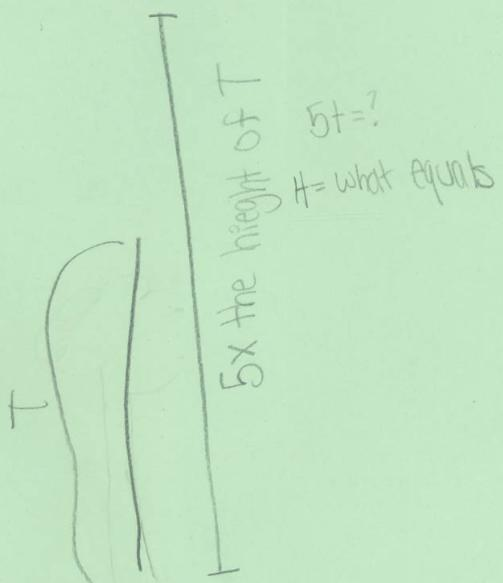 5x the hieght of T
5t=?
H= what equals
T